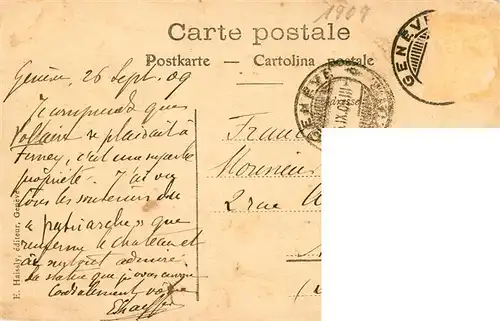 1909
Carte postale
Postkarte — Cartolina postale
GENÈVE
GENÈVE
IX.09
Genève, 26 Sept. 09
Je comprends que
Voltaire se plaidait à
Ferney, c'est une superbe
propriété. J'ai vu
tous les souvenirs du
« patriarche » que
renferme le chateau et
ai surtout admiré
la statue que
Cordialement vôtre
France
Monsieur
2 rue
E. Haissly, éditeur, Genève